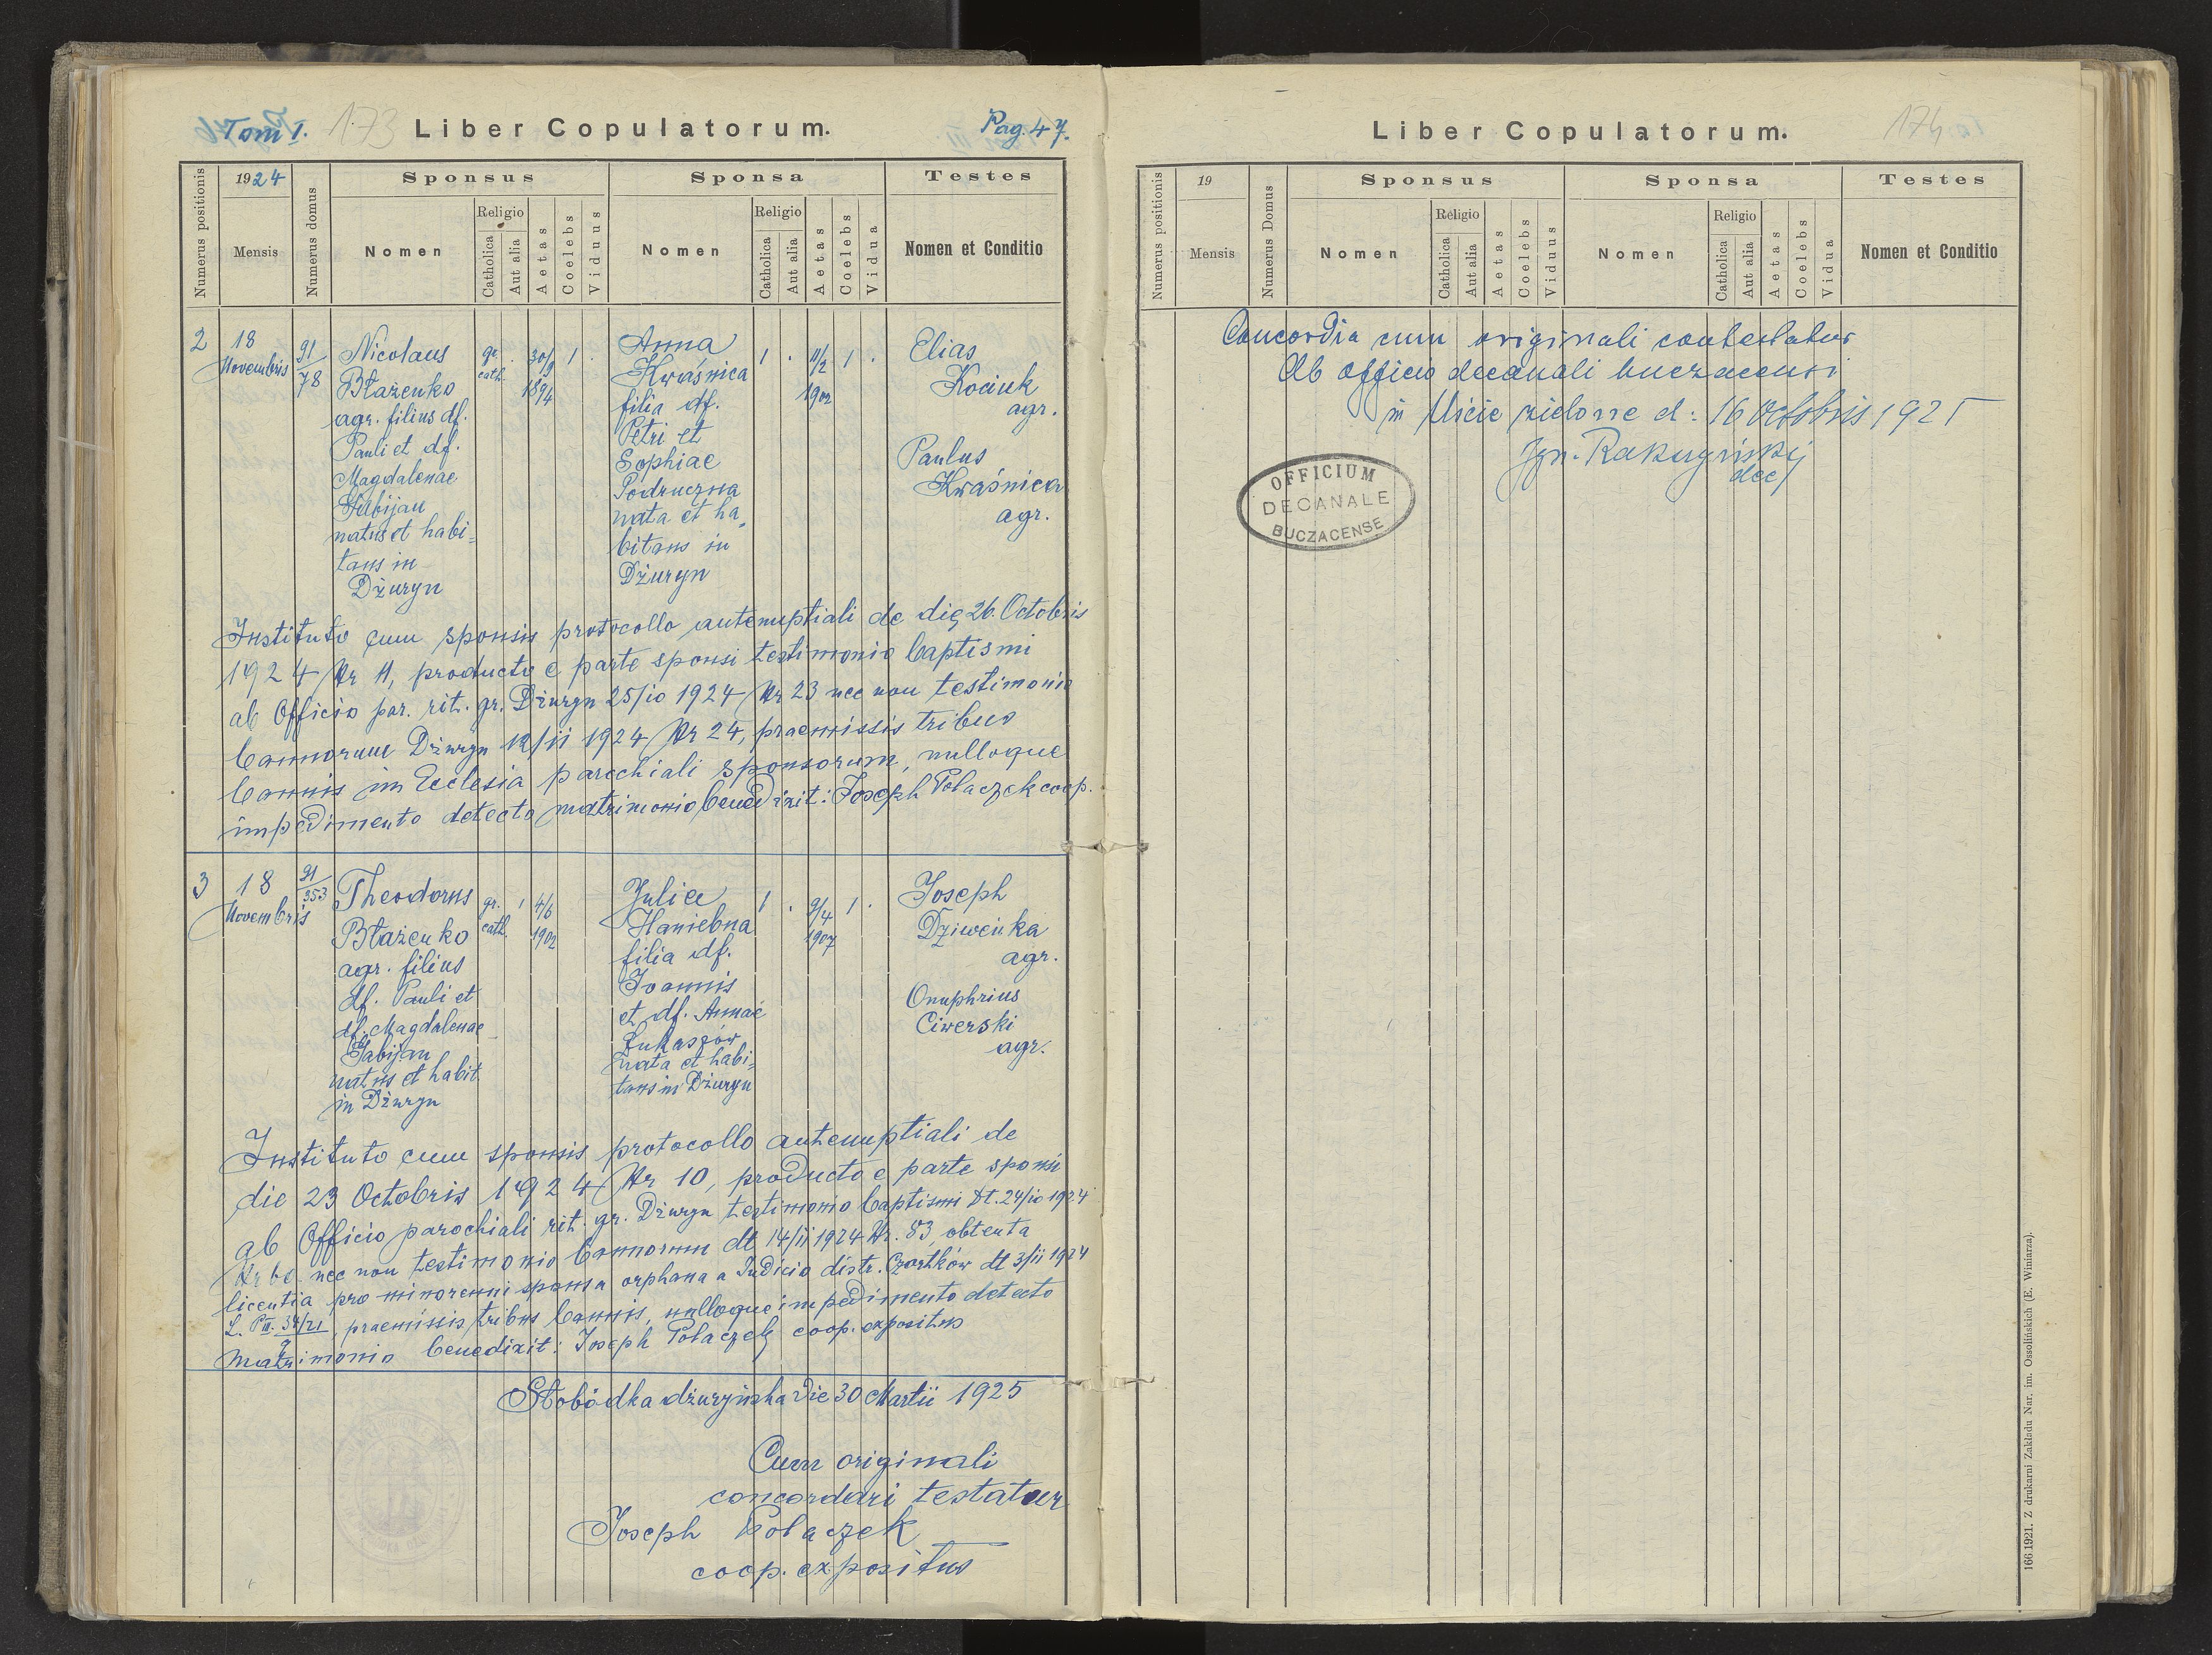 Tom I. 173 Liber Copulatorum. Pag. 47.
Numerus positionis
1924
Mensis
Numerus domus
Sponsus
Nomen
Religio
Catholica
Aut alia
Aetas
Coelebs
Viduus
Sponsa
Nomen
Religio
Catholica
Aut alia
Aetas
Coelebs
Vidua
Testes
Nomen et Conditio
2
18
Novembris
91
78
Nicolaus
Błażenko
agr. filius df.
Pauli et df.
Magdalenae
natus et habi-
tans in
Dżuryn
gr.
cath.
30/9
1894
1
Anna
Kwaśnica
filia df.
Petri et
Sophiae
Podruczna
nata et ha-
bitans in
Dżuryn
1
11/2
1902
1
Elias
Kociuk
agr.
Paulus
Kwaśnica
agr.
Instituto cum sponsis protocollo antenuptiali de die 26. Octobris
1924 Nr 11, producto e parte sponsi testimonio baptismi
ab Officio par. rit. gr. Dżuryn 25/10 1924 Nr 23 nec non testimonio
bannorum Dżuryn 12/11 1924 Nr 24, praemissis tribus
bannis in Ecclesia parochiali sponsorum, nulloque
impedimento detecto matrimonio benedixit: Joseph Polaczek coop.
3
18
Novembris
91
353
Theodorus
Błażenko
agr. filius
df. Pauli et
df. Magdalenae
Gabijan
natus et habit.
in Dżuryn
gr.
cath.
1
4/6
1902
Julia
Haniebna
filia df.
Joannis
et df. Annae
Łukaszów
nata et habi-
tans in Dżuryn
1
9/4
1907
1
Joseph
Dziweńka
agr.
Onuphrius
Ciwerski
agr.
Instituto cum sponsis protocollo antenuptiali de
die 23 Octobris 1924 Nr 10, producto e parte sponsi
ab Officio parochiali rit. gr. Dżuryn testimonio baptismi dt. 24/10 1924
nec non testimonio bannorum dt 14/11 1924 Nr. 83, obtenta
licentia pro minorenni sponsa orphana a Judicio distr. Czortków dt 3/11 1924
praemissis tribus bannis, nulloque impedimento detecto
matrimonio benedixit: Joseph Polaczek coop. expositus
Słobódka dżuryńska die 30 Martii 1925
Cum originali
concordari testatur
Joseph Polaczek
coop. expositus
Liber Copulatorum. 174
Numerus positionis
19
Mensis
Numerus Domus
Sponsus
Nomen
Religio
Catholica
Aut alia
Aetas
Coelebs
Viduus
Sponsa
Nomen
Religio
Catholica
Aut alia
Aetas
Coelebs
Vidua
Testes
Nomen et Conditio
Concordia cum originali contestatur
Ab officio decanali buczacensi
in Uście zielone d: 16 Octobris 1925
dec
OFFICIUM
DECANALE
BUCZACENSE
166 1921. Z drukarni Zakładu Nar. im. Ossolińskich (E. Winiarza).